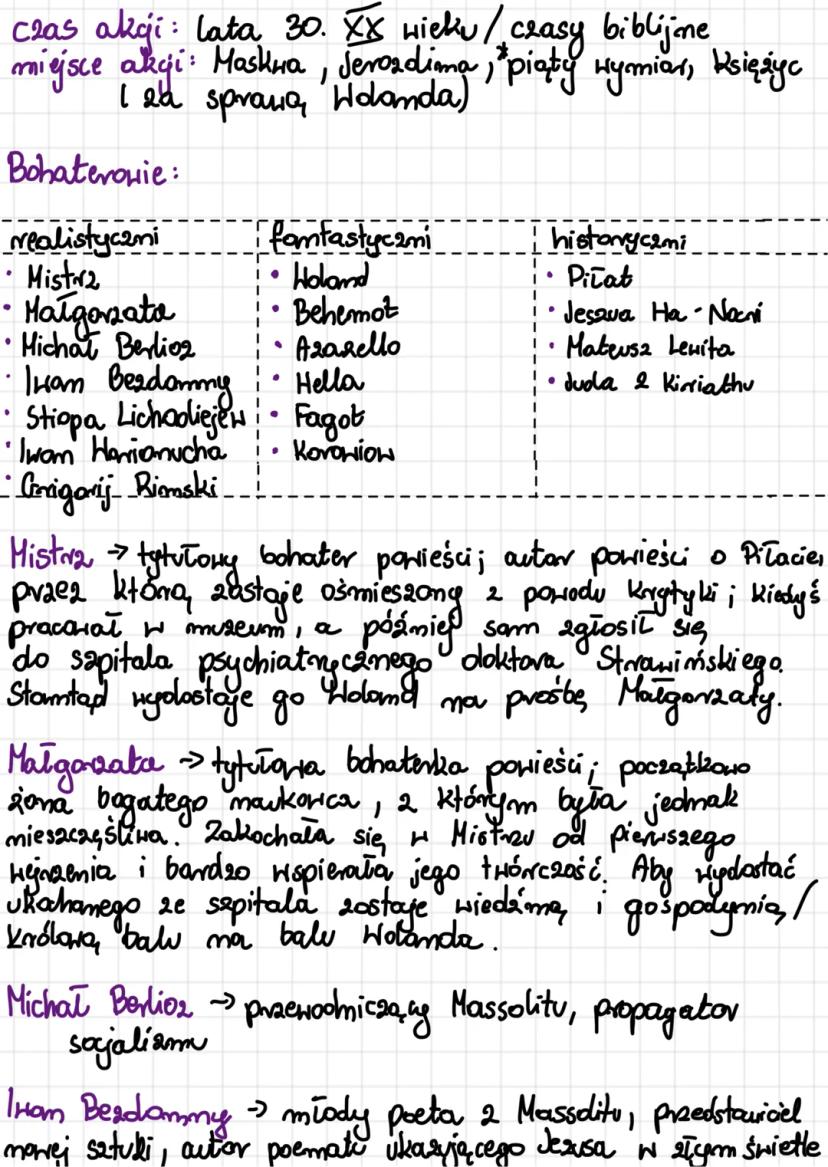 czas akcji: lata 30. XX wieku / czasy biblijne
miejsce akcji: Moskwa, Jerozolima, *piąty wymiar, Księżyc
(za sprawą Wolanda)
Bohaterowie:
realistyczni
• Mistrz
• Małgorzata
• Michał Berlioz
• Iwan Bezdomny
• Stiopa Lichodiejew
• Iwan Warionucha
• Grigorij Rimski
fantastyczni
• Woland
• Behemot
• Azazello
• Hella
• Fagot
• Korowiow
historyczni
• Piłat
• Jeszua Ha-Nocri
• Mateusz Lewita
• Juda z Kiriathu
Mistrz → tytułowy bohater powieści; autor powieści o Piłacie,
przez którą zostaje ośmieszony z powodu krytyki; kiedyś
pracował w muzeum, a później sam zgłosił się
do szpitala psychiatrycznego doktora Strawińskiego.
Stamtąd wydostaje go Woland na prośbę Małgorzaty.
Małgorzata → tytułowa bohaterka powieści; początkowo
żona bogatego naukowca, z którym była jednak
nieszczęśliwa. Zakochała się w Mistrzu od pierwszego
wejrzenia i bardzo wspierała jego twórczość. Aby wydostać
ukochanego ze szpitala zostaje wiedźmą i gospodynią/
królową balu na balu Wolanda.
Michał Berlioz → przewodniczący Massolitu, propagator
socjalizmu
Iwan Bezdomny → młody poeta z Massolitu, przedstawiciel
nowej sztuki, autor poematu ukazującego Jezusa w złym świetle